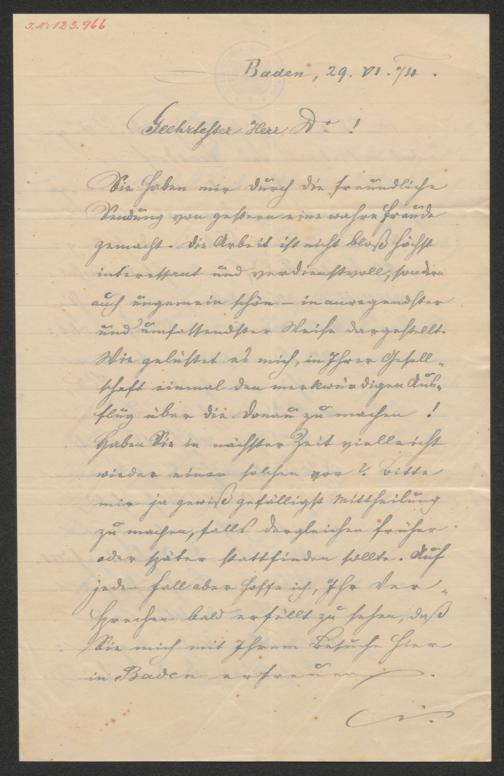 I.N. 123.966
Baden, 29. VI.
Geehrtester Herr Dr!
Sie haben mir durch die freundliche
Sendung von gestern eine wahre Freude
gemacht. Die Arbeit ist nicht bloß höchst
interessant und verdienstvoll, sondern
auch ungemein schön – in anregendster
und umfassendster Weise dargestellt.
Wie gelüstet es mich, in Ihrer Gesell-
schaft einmal den merkwürdigen Aus-
flug über die Donau zu machen!
Haben Sie in nächster Zeit vielleicht
wieder einen solchen vor? Bitte
mir ja gewiß gefälligst Mittheilung
zu machen, falls dergleichen früher
oder später stattfinden sollte. Auf
jeden Fall aber hoffe ich, Ihr Ver-
sprechen bald erfüllt zu sehen, daß
Sie mich mit Ihrem Besuche hier
in Baden erfreuen